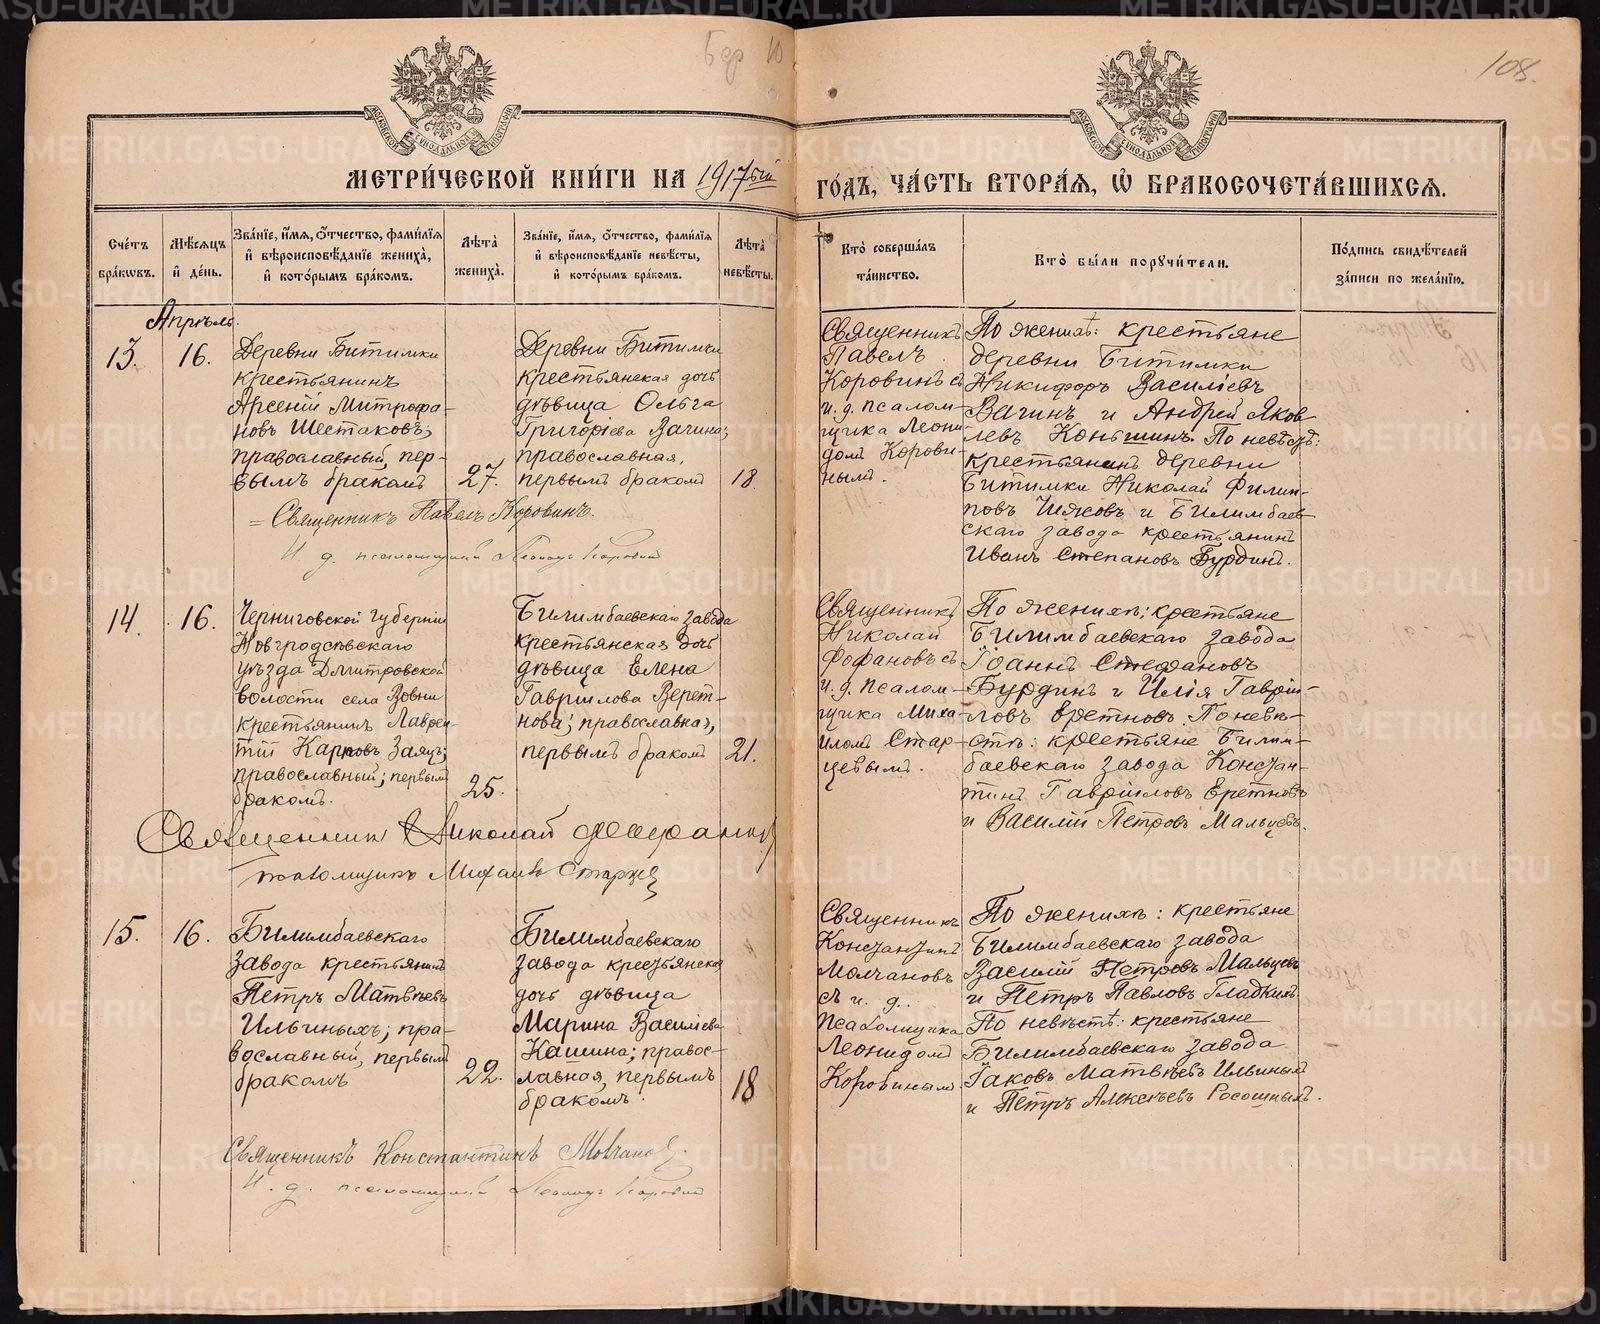 108.
МЕТРИ́ЧЕСКОЙ КНИ́ГИ НА 1917ый
ГО́ДЪ, ЧА́СТЬ ВТОРА́Я, Ѡ БРАКОСОЧЕТА́ВШИХСЯ.
Сче́тъ бра́кωвъ.
Мѣ́сяцъ и де́нь.
Зва́нїе, и́мя, ѻ́тчество, фами́лїя и вѣроисповѣ́данїе жениха̀, и кото́рымъ бра́комъ.
Лѣта̀ жениха̀.
Зва́нїе, и́мя, ѻ́тчество, фами́лїя и вѣроисповѣ́данїе невѣ́сты, и кото́рымъ бра́комъ.
Лѣта̀ невѣ́сты.
Кто̀ соверша́лъ та́инство.
Кто̀ бы́ли порꙋчи́тели.
По́дпись свидѣ́телей за́писи по жела́нїю.
Апрѣль.
13.
16.
Деревни Битимки
крестьянинъ
Арсеній Митрофа-
новъ Шестаковъ;
православный, пер-
вымъ бракомъ
27.
Деревни Битимки
крестьянская дочь
дѣвица Ольга
Григоріева Вагина;
православная,
первымъ бракомъ
18.
Священникъ
Павелъ
Коровинъ съ
и. д. псалом-
щика Леони-
домъ Корови-
нымъ.
По женихѣ: крестьяне
деревни Битимки
Никифоръ Василіевъ
Вагинъ и Андрей Яков-
левъ Коньшинъ. По невѣстѣ:
крестьянинъ деревни
Битимки Николай Филип-
повъ и Билимбаев-
скаго завода крестьянинъ
Иванъ Степановъ Бурдинъ.
= Священникъ Павелъ Коровинъ.
И. д. псаломщика Леонидъ Коровинъ
14.
16.
Черниговской губерніи
Новгродсѣвскаго
уѣзда Дмитровской
волости села
крестьянинъ Лаврен-
тій Карповъ Заяцъ;
православный; первымъ
бракомъ.
25.
Билимбаевскаго завода
крестьянская дочь
дѣвица Елена
Гавриілова Верет-
нова; православная,
первымъ бракомъ
21.
Священникъ
Николай
Фофановъ съ
и. д. псалом-
щика Миха-
иломъ Стар-
цевымъ.
По женихѣ: крестьяне
Билимбаевскаго завода
Іоаннъ Стефановъ
Бурдинъ и Илія Гавріи-
ловъ Еретновъ. По невѣ-
стѣ: крестьяне Билим-
баевскаго завода Констан-
тинъ Гавріиловъ Еретновъ
и Василій Петровъ Мальцевъ.
Священникъ Николай Фофановъ
псаломщикъ Михаилъ Старцев
15.
16.
Билимбаевскаго
завода крестьянинъ
Петръ Матвѣевъ
Ильиныхъ; пра-
вославный, первымъ
бракомъ
22.
Билимбаевскаго
завода крестьянская
дочь дѣвица
Марина Василіева
Кашина; правос-
лавная, первымъ
бракомъ.
18
Священникъ
Константинъ
Молчановъ
съ и. д.
псаломщика
Леонидомъ
Коровинымъ.
По женихѣ: крестьяне
Билимбаевскаго завода
Василій Петровъ Мальцевъ
и Петръ Павловъ Гладкихъ.
По невѣстѣ: крестьяне
Билимбаевскаго завода
Іаковъ Матвѣевъ Ильиныхъ
и Петръ Алексѣевъ Росошныхъ.
Священникъ Константинъ Молчановъ.
И. д. псаломщика Леонидъ Коровинъ
METRIKI.GASO-URAL.RU